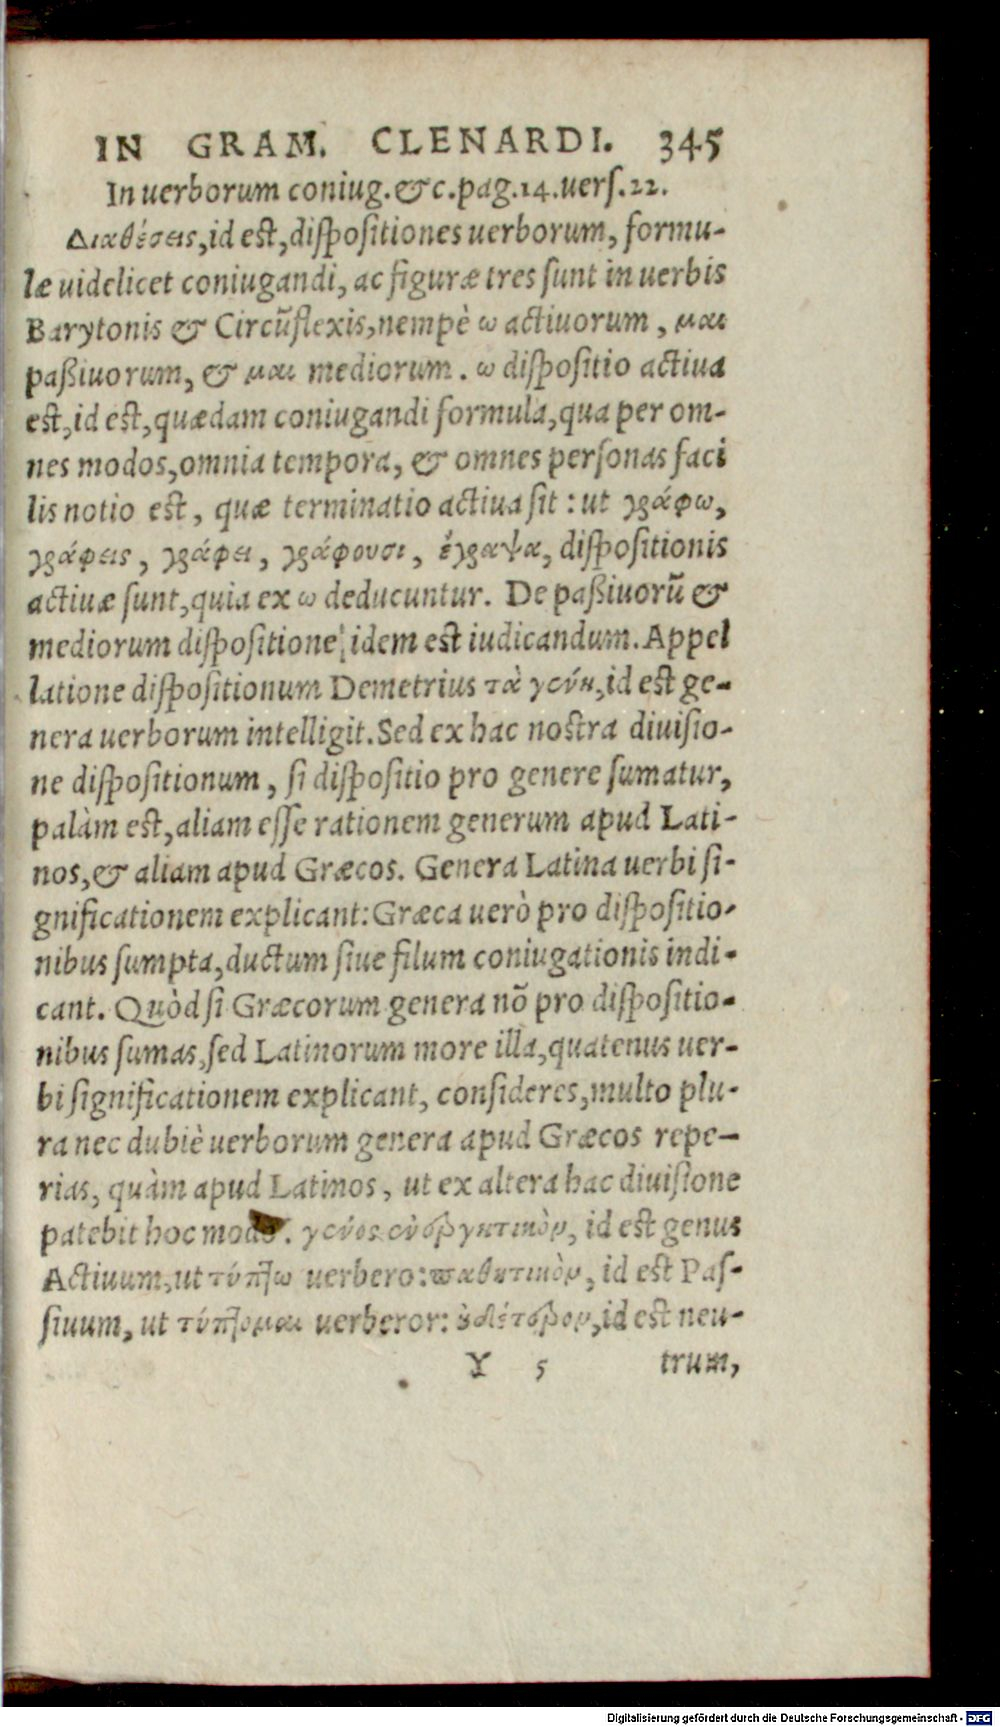 IN GRAM. CLENARDI. 345
In uerborum coniug. &c. pag. 14. uers. 22.
Διαθέσεις, id est, dispositiones uerborum, formu-
læ uidelicet coniugandi, ac figuræ tres sunt in uerbis
Barytonis & Circũflexis, nempè ω actiuorum, μαι
paßiuorum, & μαι mediorum. ω dispositio actiua
est, id est, quædam coniugandi formula, qua per om-
nes modos, omnia tempora, & omnes personas faci
lis notio est, quæ terminatio actiua sit: ut γράφω,
γράφεις, γράφει, γράφουσι, ἔγραψα, dispositionis
actiuæ sunt, quia ex ω deducuntur. De paßiuorũ &
mediorum dispositione idem est iudicandum. Appel
latione dispositionum Demetrius τὰ γένη, id est ge-
nera uerborum intelligit. Sed ex hac nostra diuisio-
ne dispositionum, si dispositio pro genere sumatur,
palàm est, aliam esse rationem generum apud Lati-
nos, & aliam apud Græcos. Genera Latina uerbi si-
gnificationem explicant: Græca uerò pro dispositio-
nibus sumpta, ductum siue filum coniugationis indi-
cant. Quòd si Græcorum genera nõ pro dispositio-
nibus sumas, sed Latinorum more illa, quatenus uer-
bi significationem explicant, consideres, multo plu-
ra nec dubiè uerborum genera apud Græcos repe-
rias, quàm apud Latinos, ut ex altera hac diuisione
patebit hoc modo. γένος ἐνεργητικὸν, id est genus
Actiuum, ut τύπτω uerbero: παθητικὸν, id est Pas-
siuum, ut τύπτομαι uerberor: οὐδέτερον, id est neu-
Y 5 trum,
Digitalisierung gefördert durch die Deutsche Forschungsgemeinschaft - DFG